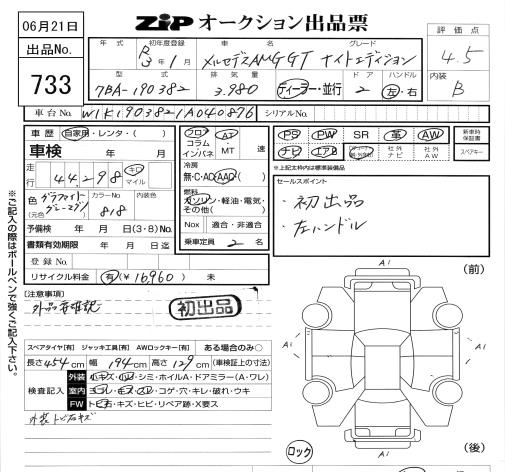 06月21日
ZIP オークション出品票
出品No.
733
年式
初年度登録
R3年1月
車名
メルセデスAMG GT
グレード
ナイトエディション
評価点
4.5
内装
B
型式
7BA-190382
排気量
3.980
ディーラー・並行
ドア
2
ハンドル
左・右
車台No.
W1K1903821A040876
シリアルNo.
車歴 自家用・レンタ・( )
車検 年 月
走行
44,298
キロ
マイル
色
(元色
グラファイトグレーマグノ
カラーNo
818
内装色
予備検 年 月 日(3・8)No.
書類有効期限 年 月 日迄
登録No.
リサイクル料金 有(¥16,960) 未
フロア
コラム
インパネ
AT
・
MT
速
冷房
無・C・AC・AAC
燃料
ガソリン・軽油・電気・
その他( )
Nox 適合・非適合
乗車定員 2 名
PS PW SR 革 AW
ナビ エアB 社外ナビ 社外AW
新車時保証書
スペアキー
※上記太枠内は標準装備品
セールスポイント
・初出品
・左ハンドル
[注意事項]
初出品
スペアタイヤ[有] ジャッキ工具[有] AWロックキー[有] ある場合のみ○
長さ454cm 幅194cm 高さ129cm (車検証上の寸法)
検査記入
外装 小キズ・小凹・シミ・ホイルA・ドアミラー(A・ワレ)
室内 ヨゴレ・キズ・スレ・コゲ・穴・キレ・破れ・ウキ
FW トビ石・キズ・ヒビ・リペア跡・X要ス
外装トビ石キズ
※ご記入の際はボールペンで強くご記入下さい。
(前)
A1
A1
A1
A1
(後)
ロック